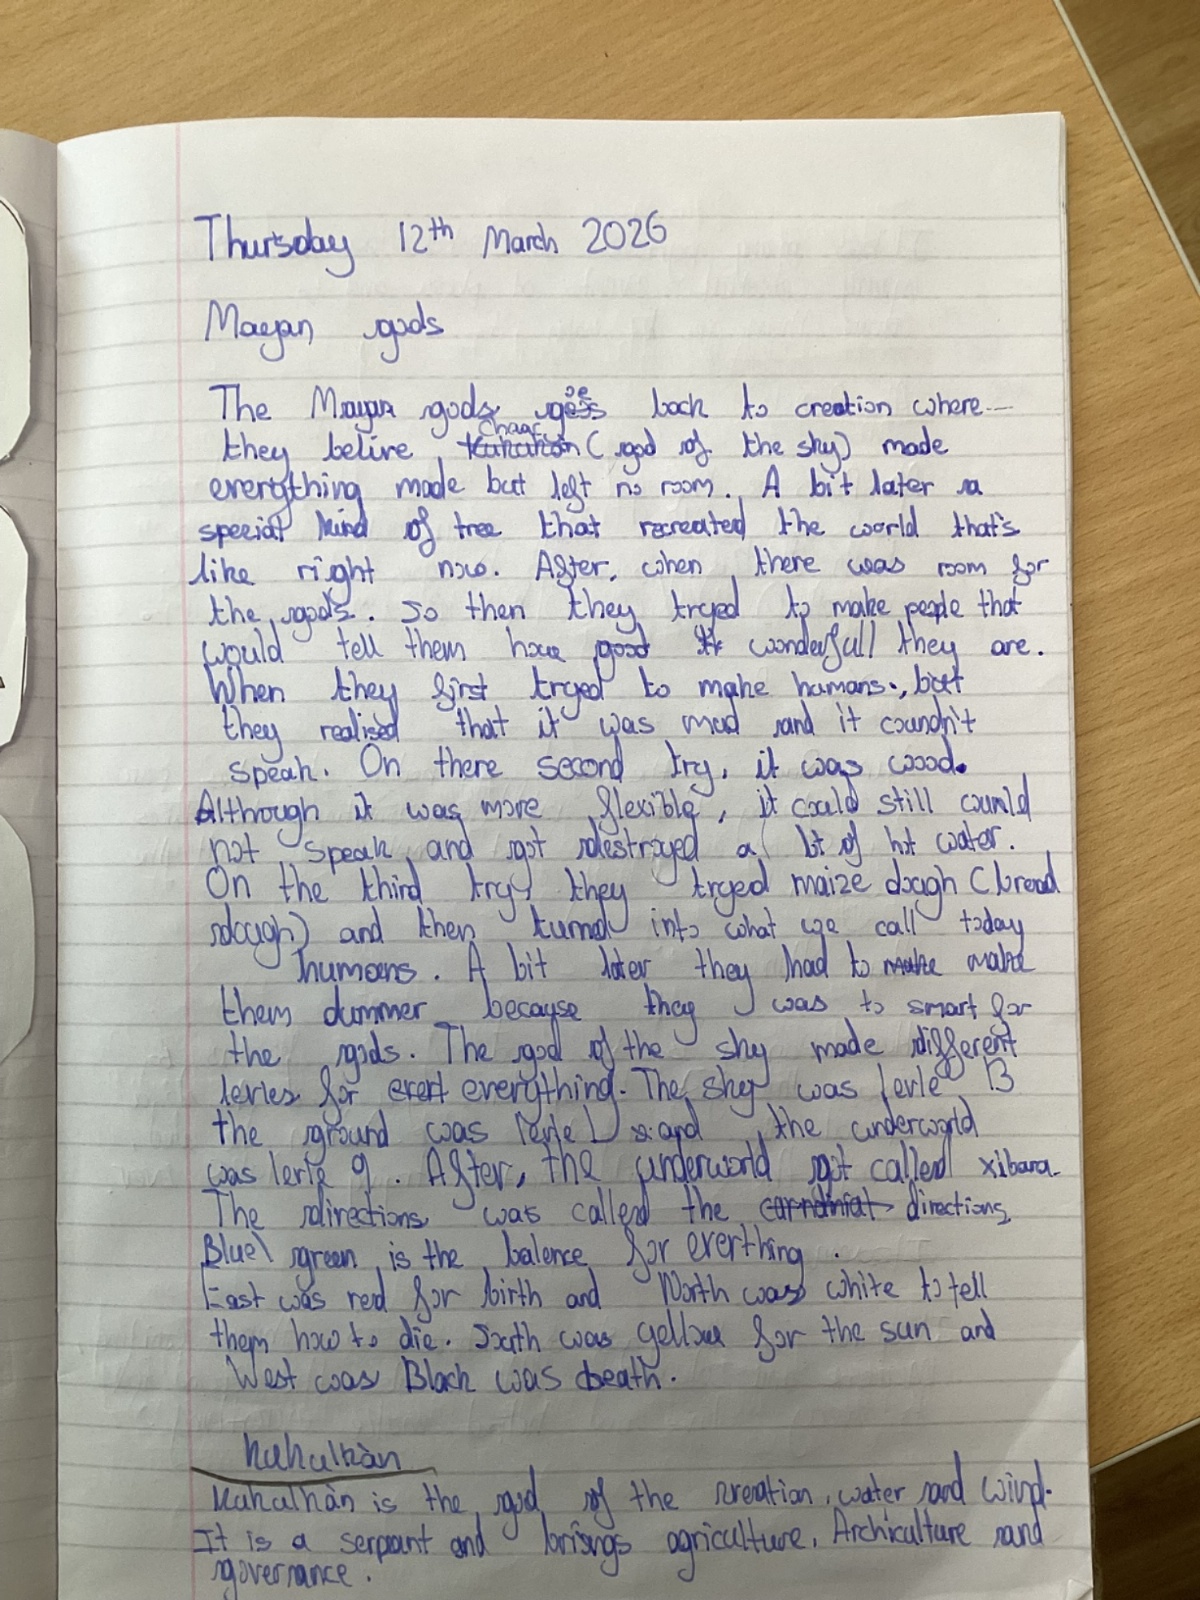 Thursday 12th March 2026
Mayan gods
The Mayan gods goes back to creation where
they belive Chaac (god of the sky) made
everything made but left no room. A bit later a
special kind of tree that recreated the world that's
like right now. After, when there was room for
the gods. So then they tryed to make people that
would tell them how good wonderfull they are.
When they first tryed to make humans, but
they realised that it was mud and it coundn't
speak. On there second try, it was wood.
Although it was more flexible, it could still could
not speak and got destroyed a bt of hot water.
On the third try they tryed maize dough (bread
dough) and then turnd into what we call today
humans. A bit later they had to make
them dummer because they was to smart for
the gods. The god of the sky made different
levles for everything. The sky was levle 13
the ground was levle 1 and the underworld
was levle 9. After, the underworld got called xibara
The directions was called the directions.
Blue green is the balence for everthing.
East was red for birth and North was white to tell
them how to die. South was yellow for the sun and
West was Black was death.
Kukulkàn
Kukulkàn is the god of the creation, water and wind.
It is a serpant and brisngs agriculture, Archiculture and
governance.